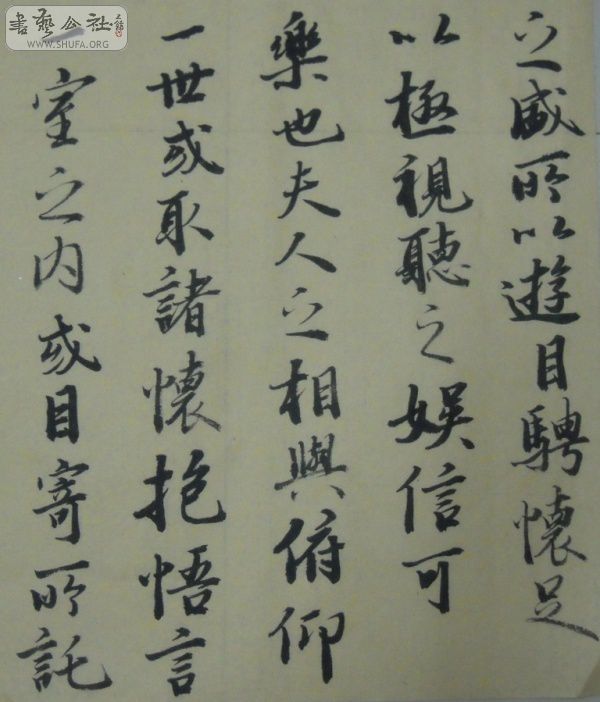 書藝公社
WWW.SHUFA.ORG
之盛所以遊目騁懷足
以極視聽之娛信可
樂也夫人之相與俯仰
一世或取諸懷抱悟言
室之內或目寄所託